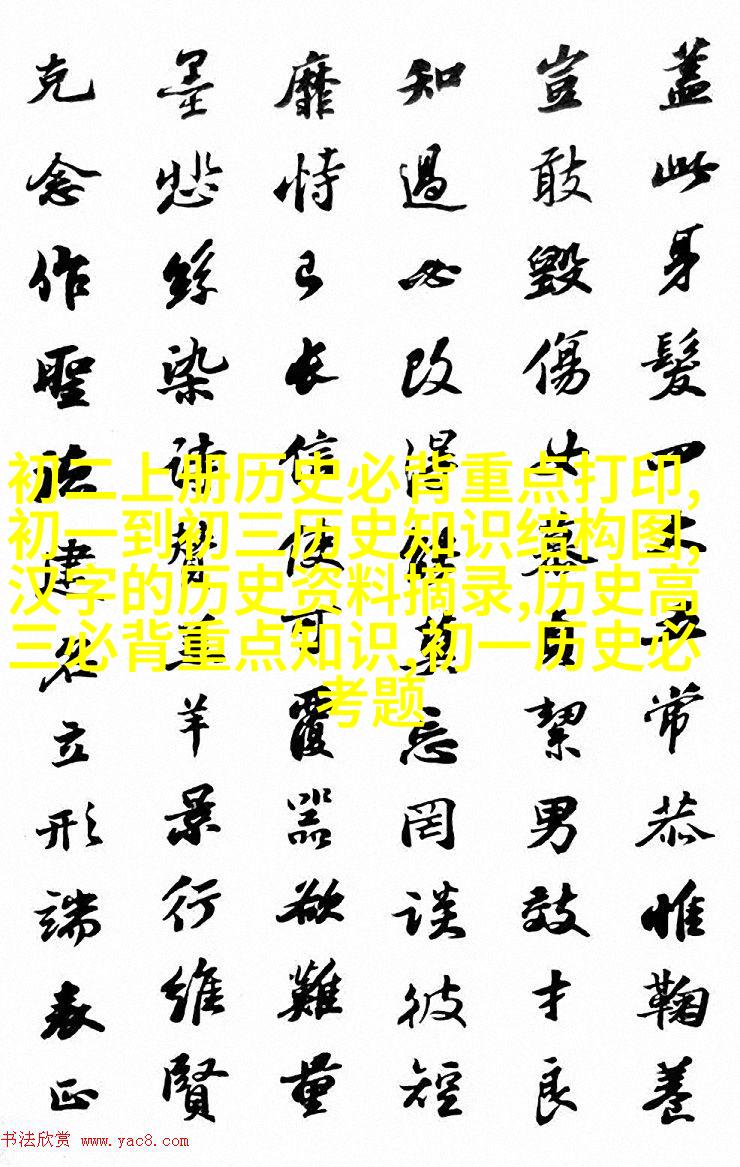 蓋此身髮四大五常恭惟鞠養
豈敢毀傷女慕貞絜男效才良
知過必改得能莫忘罔談彼短
靡恃己長信使可覆器欲難量
墨悲絲染詩讚羔羊景行維賢
克念作聖德建名立形端表正
初二上册历史必背重点打印,
初一到初三历史知识结构图,
汉字的历史资料摘录,历史高
三必背重点知识,初一历史必
考题
书法欣赏 www.yac8.com